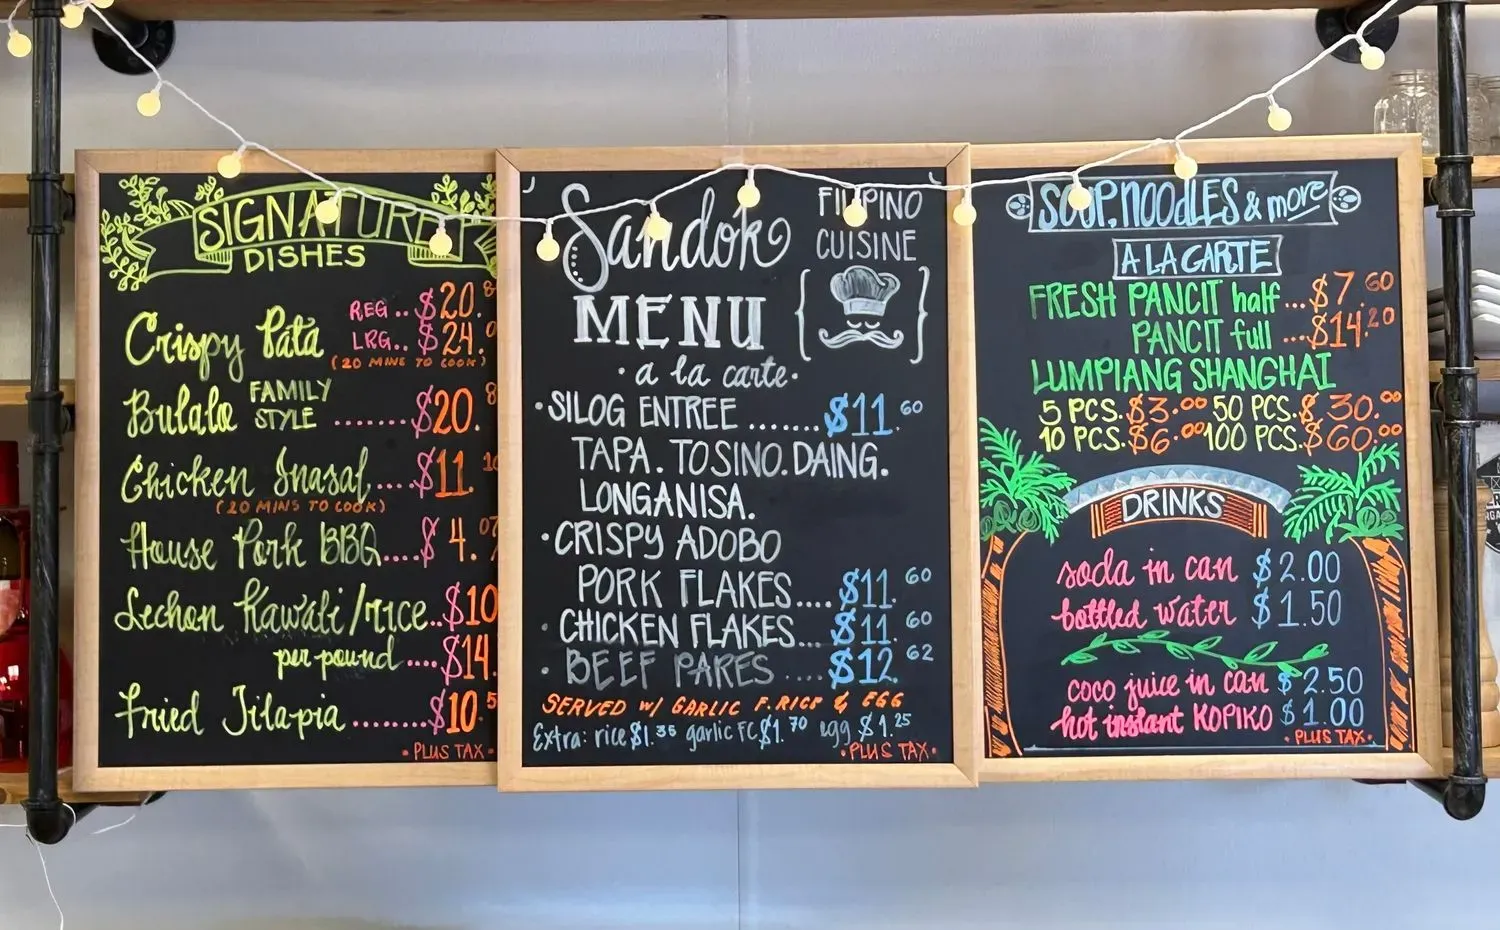 SIGNATURE
DISHES
Crispy Pata REG.. $20.
LRG.. $24.
(20 MINS TO COOK)
Bulalo FAMILY STYLE ....... $20.
Chicken Inasal.... $11. 10
(20 MINS TO COOK)
House Pork BBQ.... $4. 07
Lechon Kawali/rice.. $10
per pound .... $14.
Fried Tilapia ....... $10. 5
• PLUS TAX •
Sandok
FILIPINO
CUISINE
MENU
• a la carte •
• SILOG ENTREE ....... $11. 60
TAPA. TOSINO. DAING.
LONGANISA.
• CRISPY ADOBO
PORK FLAKES.... $11. 60
• CHICKEN FLAKES... $11. 60
• BEEF PARES .... $12. 62
SERVED W/ GARLIC F. RICE & EGG
Extra: rice $1.35 garlic FC $1.70 egg $1.25
• PLUS TAX •
SOUP, NOODLES & more
A LA CARTE
FRESH PANCIT half ... $7.60
PANCIT full ... $14.20
LUMPIANG SHANGHAI
5 PCS. $3.00 50 PCS. $30.00
10 PCS. $6.00 100 PCS. $60.00
DRINKS
soda in can $2.00
bottled water $1.50
coco juice in can $2.50
hot instant KOPIKO $1.00
• PLUS TAX •